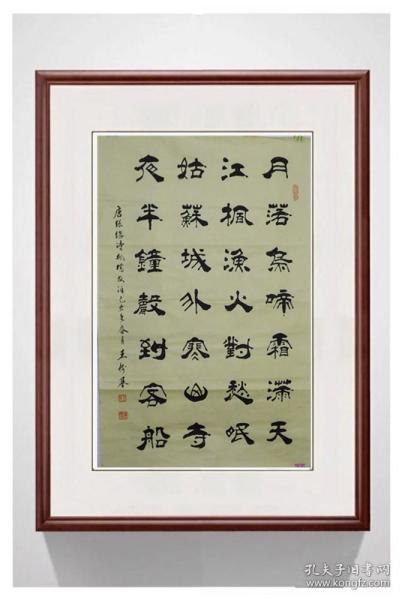 月落烏啼霜滿天
江楓漁火對愁眠
姑蘇城外寒山寺
夜半鐘聲到客船
唐張繼詩楓橋夜泊己
孔夫子旧书网
www.kongfz.com